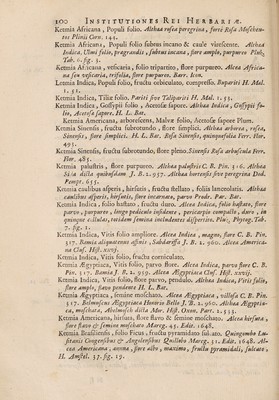 100 INSTITUTIONES REI HERBARIÆ.
Ketmia Africana, Populi folio. Althæa rosea peregrina, forte Rosa Moscheu-
tos Plinii Corn. 144.
Ketmia Africana, Populi folio subtus incano & caule virescente. Althæa
Indica, Ulmi folio, pragrandis, subtus incana, flore amplo, purpureo Pluk,
Tab. 6. fig. 3.
Ketmia Africana, vesicaria, folio tripartito, flore purpureo. Alcea Africa-
na seu vesicaria, trifolia, flore purpureo, Barr. Icon.
Ketmia Indica, Populi folio, fructu orbiculato, compresso. Bupariti H. Mal.
1. 51.
Ketmia Indica, Tiliæ folio. Pariti sive Talipariti H. Mal. 1. 53.
Ketmia Indica, Gossypii folio, Acetosæ sapore. Althæa Indica, Gossypii fo-
lio, Acetosæ sapore, H. L. Bat.
Ketmia Americana, arborescens, Malvæ folio, Acetosæ sapore Plum.
Ketmia Sinensis, fructu subrotundo, flore simplici. Althæa arborea, rosea,
Sinensis, flore simplici. H. L. Bat. Rosa Sinensis, quinquefolia fructu Ferr.
Flor.
Ketmia Sinensis, fructu subrotundo, flore pleno. Sinensis Rosa arbuscula Ferr.
Flor. 485.
Ketmia palustris, flore purpureo. Althæa palustris C. B. Pin. 316. Althæa
Sida dicta quibusdam J. B. 2. 957. Althæa hortensis sive peregrina Dod.
Pempt. 655.
Ketmia caulibus asperis, hirsutis, fructu stellato, foliis lanceolatis. Althæa
caulibus asperis, hirsutis, flore incarnato, parvo Prodr. Par. Bat.
Ketmia Indica, folio bastato, fructu duro.
Ketmia Indica, Vitis folio ampliore. Alcea Indica, magno, flore C. B. Pin.
317. Bamia aliquatenus affinis, Sabdariffa J. B. 2. 960. Alcea America-
na Cluf. Hist. xxvij.
Ketmia Indica, Vitis folio, fructu corniculato.
Ketmia Ægyptiaca, Vitis folio, parvo flore. Alcea Indica, parvo flore C. B.
Pin. 317. Bamia J. B. 2. 959. Alcea Ægyptiaca Cluf. Hist. xxvij.
Ketmia Indica, Vitis folio, flore parvo, pendulo. Althæa Indica, Vitis foliis,
flore amplo, flavo pendente H. L. Bat.
Ketmia Ægyptiaca, semine moschato. Alcea Ægyptiaca, villosa C. B. Pin.
317. Belmuscus Ægyptiaca Honorio Bello J. B. 2. 960. Althæa Ægyptia-
ca, moschata, Abelmosch dicta Mor. Hist. Oxon. Part. 2. 533.
Ketmia Americana, hirsuta, flore flavo & semine moschato. Alcea hirsuta,
flore flavo & semine moschato Marcg. 45. Edit. 1648.
Ketmia Brasiliensis, folio Ficus, fructu pyramidato sulcato. Quingombo Lu-
sitanis Congensibus & Angolensibus Quillobo Marcg. 31. Edit. 1648. Al-
cea Americana, annua, flore albo, maximo, fructu pyramidali, sulcato,
H. Amstel. 37. fig. 19.